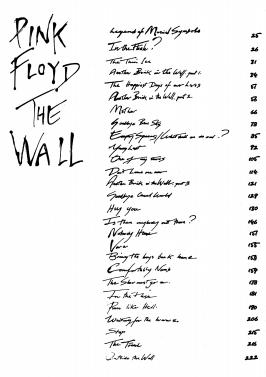 PINK
FLOYD
THE
WALL
Legend of Musical Symbols 25
In the Flesh? 26
The Thin Ice 31
Another Brick in the Wall, part 1 34
The Happiest Days of our Lives 57
Another Brick in the Wall, part 2 58
Mother 66
Goodbye Blue Sky 78
Empty Spaces/ 85
Young Lust 92
One of my turns 105
Don't leave me now 114
Another Brick in the Wall part 3 121
Goodbye Cruel World 129
Hey you 130
Is there anybody out there? 146
Nobody Home 151
Vera 155
Bring the boys back home 158
Comfortably Numb 159
The Show must go on 173
In the Flesh 181
Run like Hell 190
Waiting for the worms 206
Stop 215
The Trial 216
Outside the Wall 222